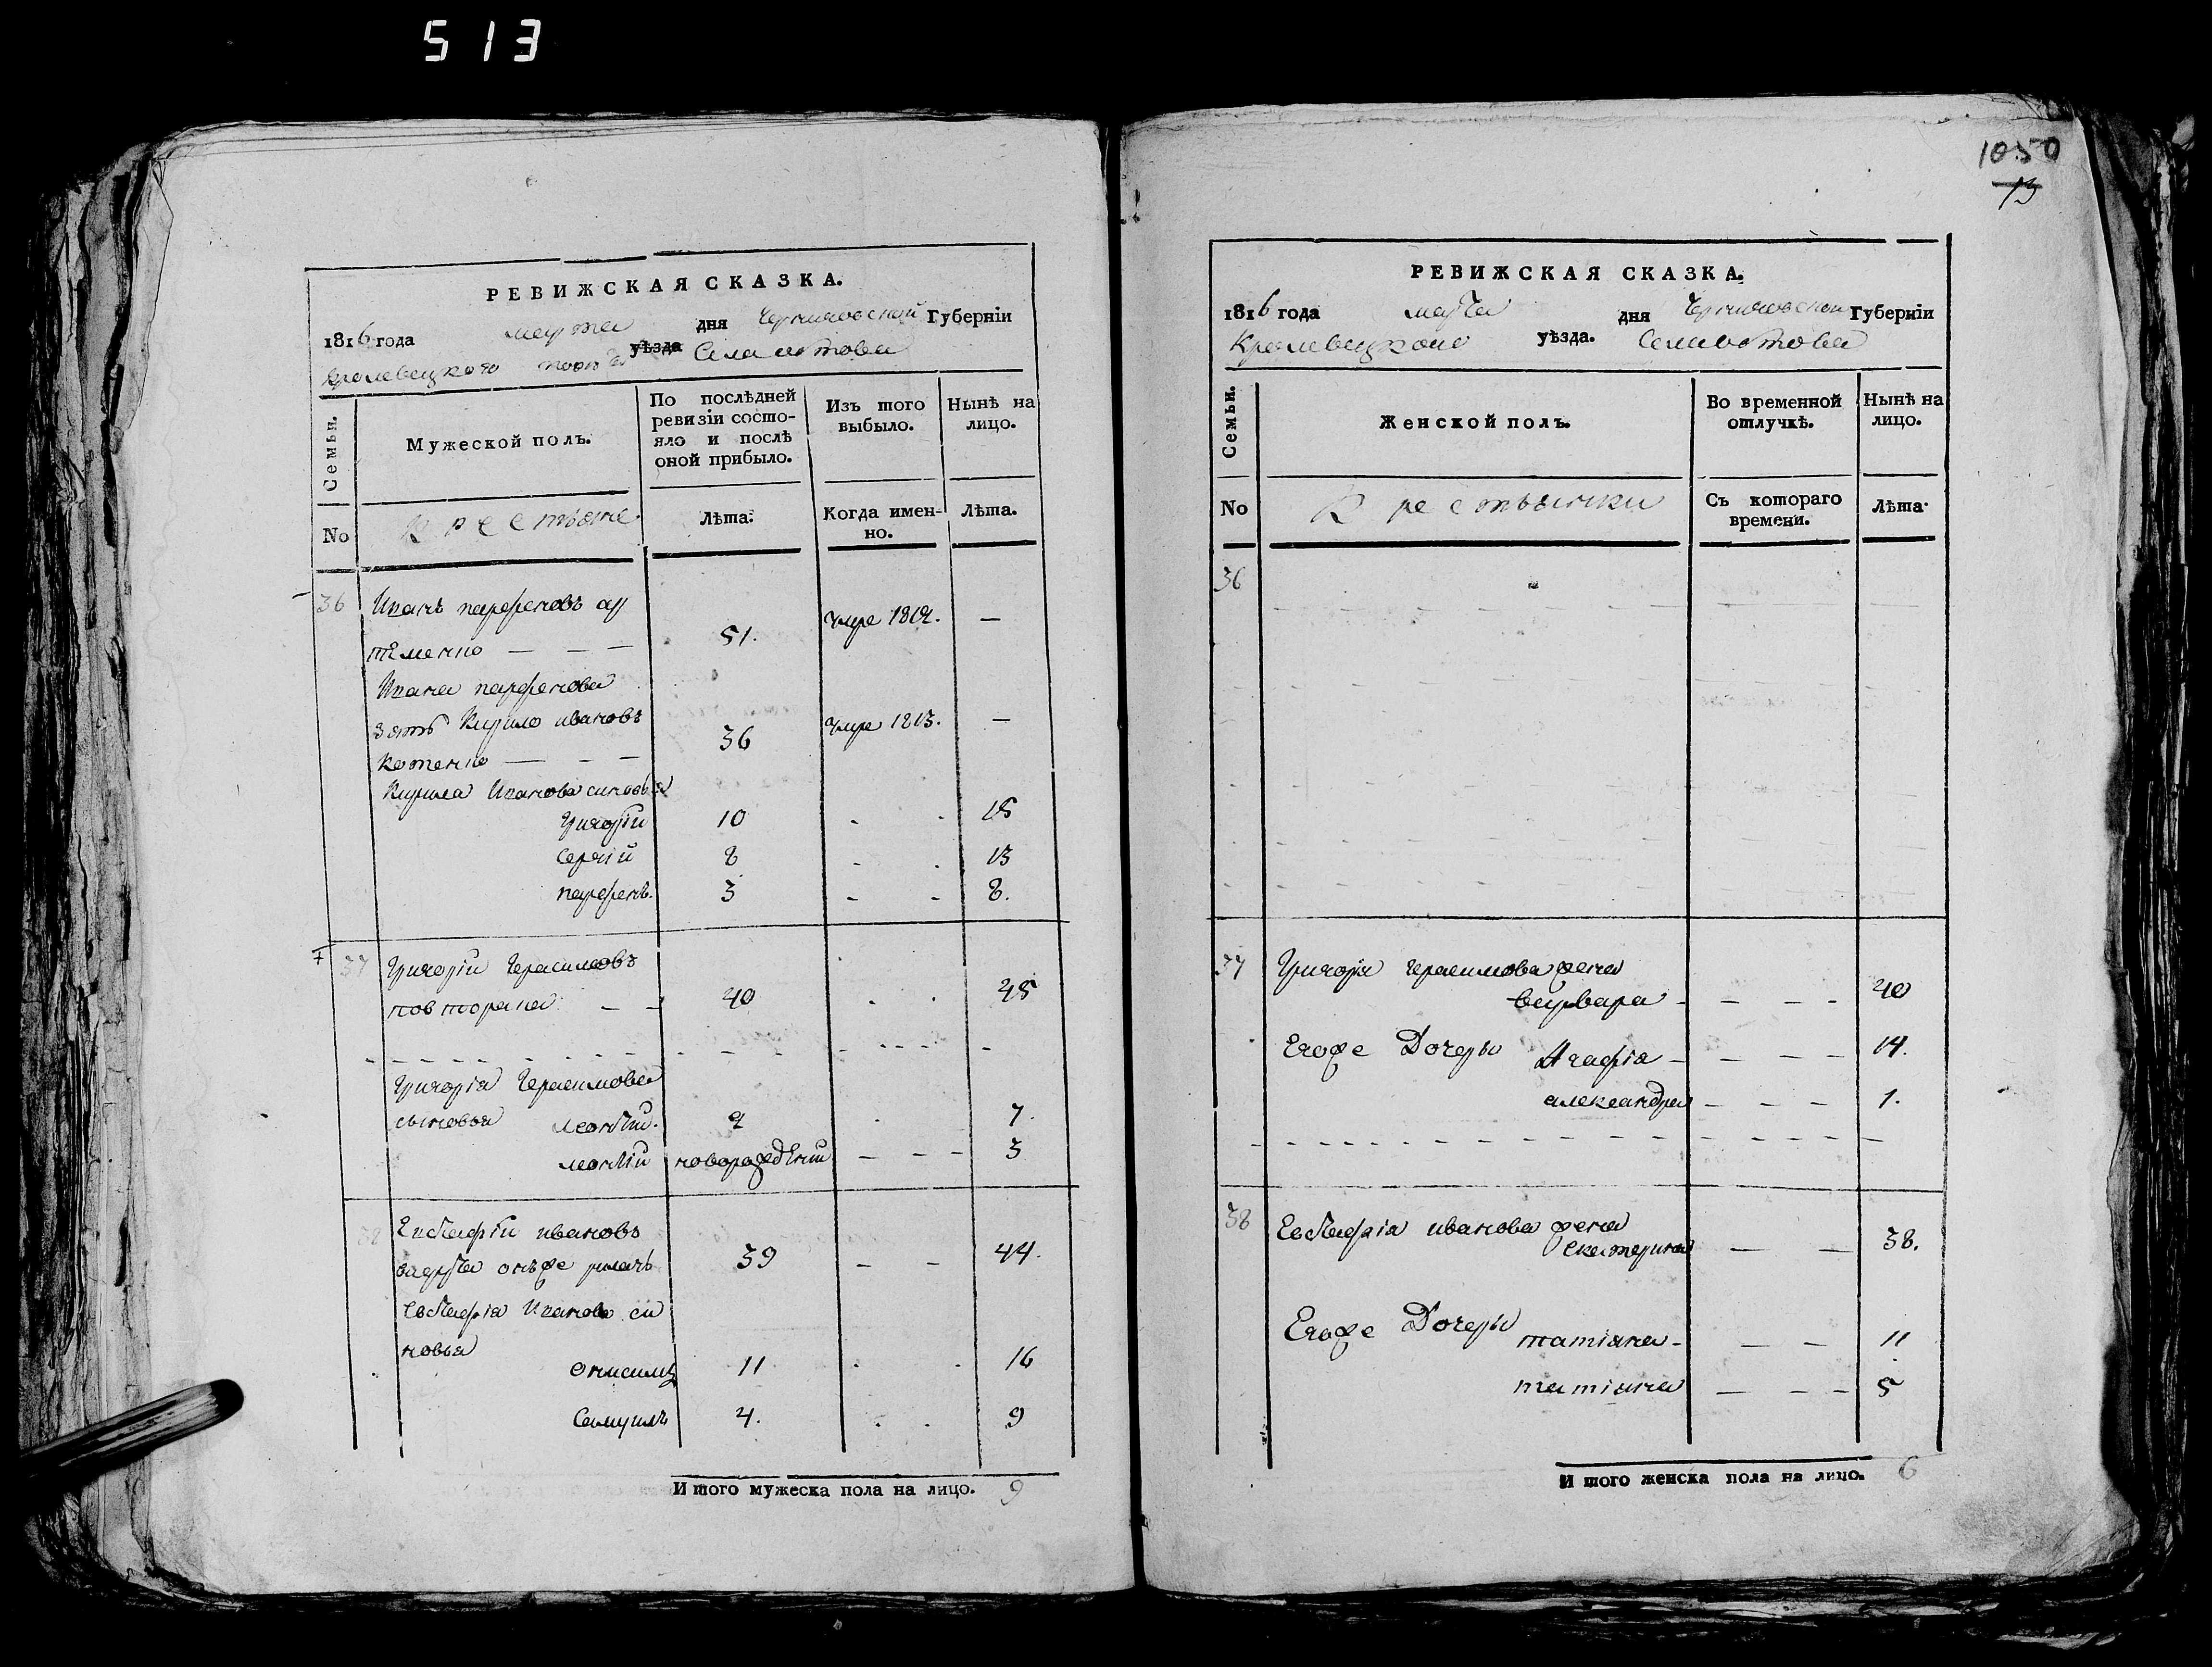 513
РЕВИЖСКАЯ СКАЗКА.
1816 года марта дня Черниговской Губерніи
Кролевецкого повѣта уѣзда Села
Семьи.
Мужеской полъ.
По послѣдней ревизіи состояло и послѣ оной прибыло.
Изъ того выбыло.
Нынѣ на лицо.
No
Крестьяне
Лѣта.
Когда именно.
Лѣта.
36 Иванъ парфеновъ ар
теменко — — — 51. умре 1812. —
Ивана парфенова
зять Кирило ивановъ
котенко — — — 36 умре 1813. —
Кирила Иванова синовья
григорій 10 15
сергій 8 13
парфенъ. 3 8.
37 Григорій Герасимовъ
повторана — — 40 45
Григорія Герасимова
сыновья леонтій. 2 7.
леонтій новорожденій — — — 3
38 Евстафій ивановъ
онъже 39 — — 44.
Евстафія Иванова си
новья
Онисимъ 11 16
Самуилъ 4. 9
И того мужеска пола на лицо. 9
1050
13
РЕВИЖСКАЯ СКАЗКА.
1816 года марта дня Черниговской Губерніи
Кролевецкого уѣзда.
Семьи.
Женской полъ.
Во временной отлучкѣ.
Нынѣ на лицо.
No
Крестьянки
Съ котораго времени.
Лѣта.
36
37 Григорія герасимова жена
варвара — — — — 40
Егоже Дочеры Агафія — — — — 14.
александра — — — 1.
38 Евстафія иванова жена
екатерина — — 38.
Егоже Дочеры
татіяна — — — 11
татіяна — — — 5
И того женска пола на лицо. 6